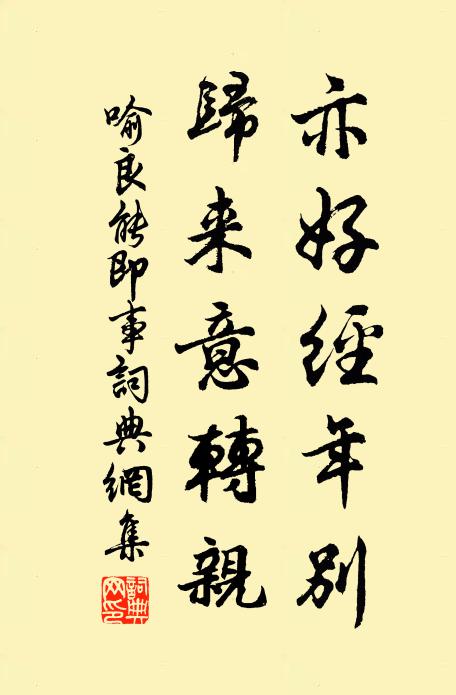 亦好經年別
歸来意轉親
喻良能即事詞典網集
詞典网印